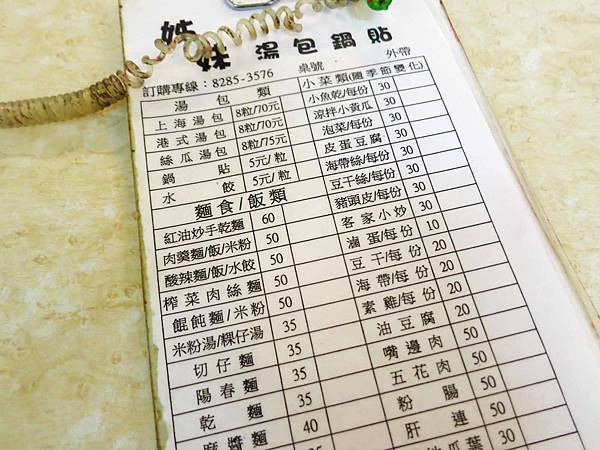 姊妹湯包鍋貼
訂購專線：8285-3576 桌號 外帶
湯包類
上海湯包 8粒/70元
港式湯包 8粒/70元
絲瓜湯包 8粒/75元
鍋貼 5元/粒
水餃 5元/粒
麵食/飯類
紅油炒手乾麵 60
肉羹麵/飯/米粉 50
酸辣麵/飯/水餃 50
榨菜肉絲麵 50
餛飩麵/米粉 50
米粉湯/粿仔湯 35
切仔麵 35
陽春麵 35
乾麵 35
麻醬麵 40
小菜類(隨季節變化)
小魚乾/每份 30
涼拌小黃瓜 30
泡菜/每份 30
皮蛋豆腐 30
海帶絲/每份 30
豆干絲/每份 30
豬頭皮/每份 30
客家小炒 30
滷蛋/每份 10
豆干/每份 20
海帶/每份 20
素雞/每份 20
油豆腐 20
嘴邊肉 50
五花肉 50
粉腸 50
肝連 50
地瓜葉 30